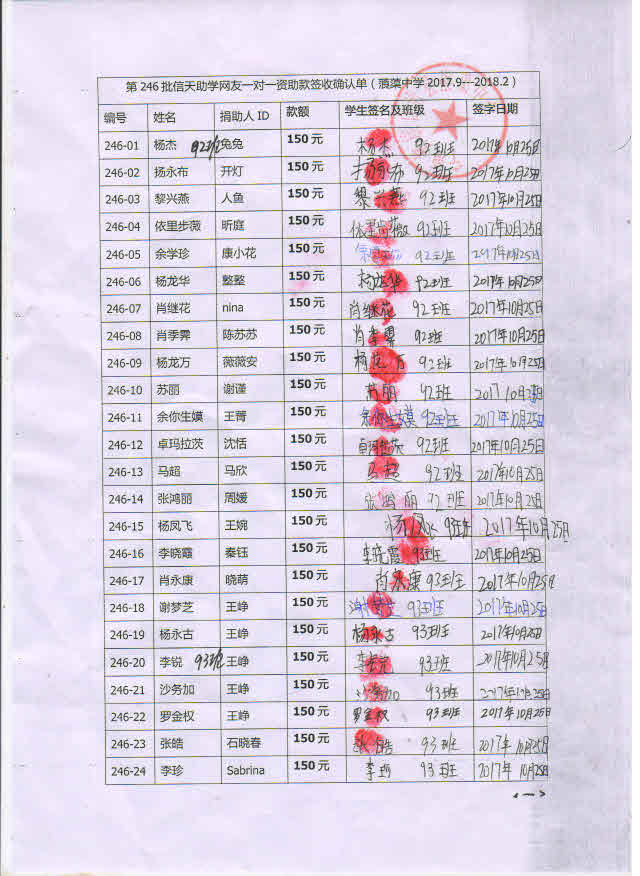 第 246 批信天助学网友一对一资助款签收确认单（蒗蕖中学 2017.9---2018.2）
编号 姓名 捐助人 ID 款额 学生签名及班级 签字日期
246-01 杨杰 92班 兔兔 150 元 杨杰 92班 2017年10月25日
246-02 扬永布 开灯 150 元 扬永布 92班 2017年10月25日
246-03 黎兴燕 人鱼 150 元 黎兴燕 92班 2017年10月25日
246-04 依里步薇 昕庭 150 元 依里步薇 92班 2017年10月25日
246-05 余学珍 康小花 150 元 92班 2017年10月25日
246-06 杨龙华 整整 150 元 杨龙华 92班 2017年10月25日
246-07 肖继花 nina 150 元 肖继花 92班 2017年10月25日
246-08 肖季霁 陈苏苏 150 元 肖季霁 92班 2017年10月25日
246-09 杨龙万 薇薇安 150 元 杨龙万 92班 2017年10月25日
246-10 苏丽 谢谨 150 元 苏丽 92班 2017 10月25日
246-11 余你生嫫 王菁 150 元 余你生嫫 92班 2017年10月25日
246-12 卓玛拉茨 沈恬 150 元 卓玛拉茨 92班 2017年10月25日
246-13 马超 马欣 150 元 马超 92班 2017年10月25日
246-14 张鸿丽 周媛 150 元 张鸿丽 92班 2017年10月25日
246-15 杨凤飞 王婉 150 元 杨凤飞 93班 2017年10月25日
246-16 李晓霞 秦钰 150 元 李晓霞 93班 2017年10月25日
246-17 肖永康 晓萌 150 元 肖永康 93班 2017年10月25日
246-18 谢梦芝 王峥 150 元 谢梦芝 93班 2017年10月25日
246-19 杨永古 王峥 150 元 杨永古 93班 2017年10月25日
246-20 李锐 93班 王峥 150 元 李锐 93班 2017年10月25日
246-21 沙务加 王峥 150 元 沙务加 93班 2017年10月25日
246-22 罗金权 王峥 150 元 罗金权 93班 2017年10月25日
246-23 张皓 石晓春 150 元 张皓 93班 2017年10月25日
246-24 李珍 Sabrina 150 元 李珍 93班 2017年10月25日
<一>